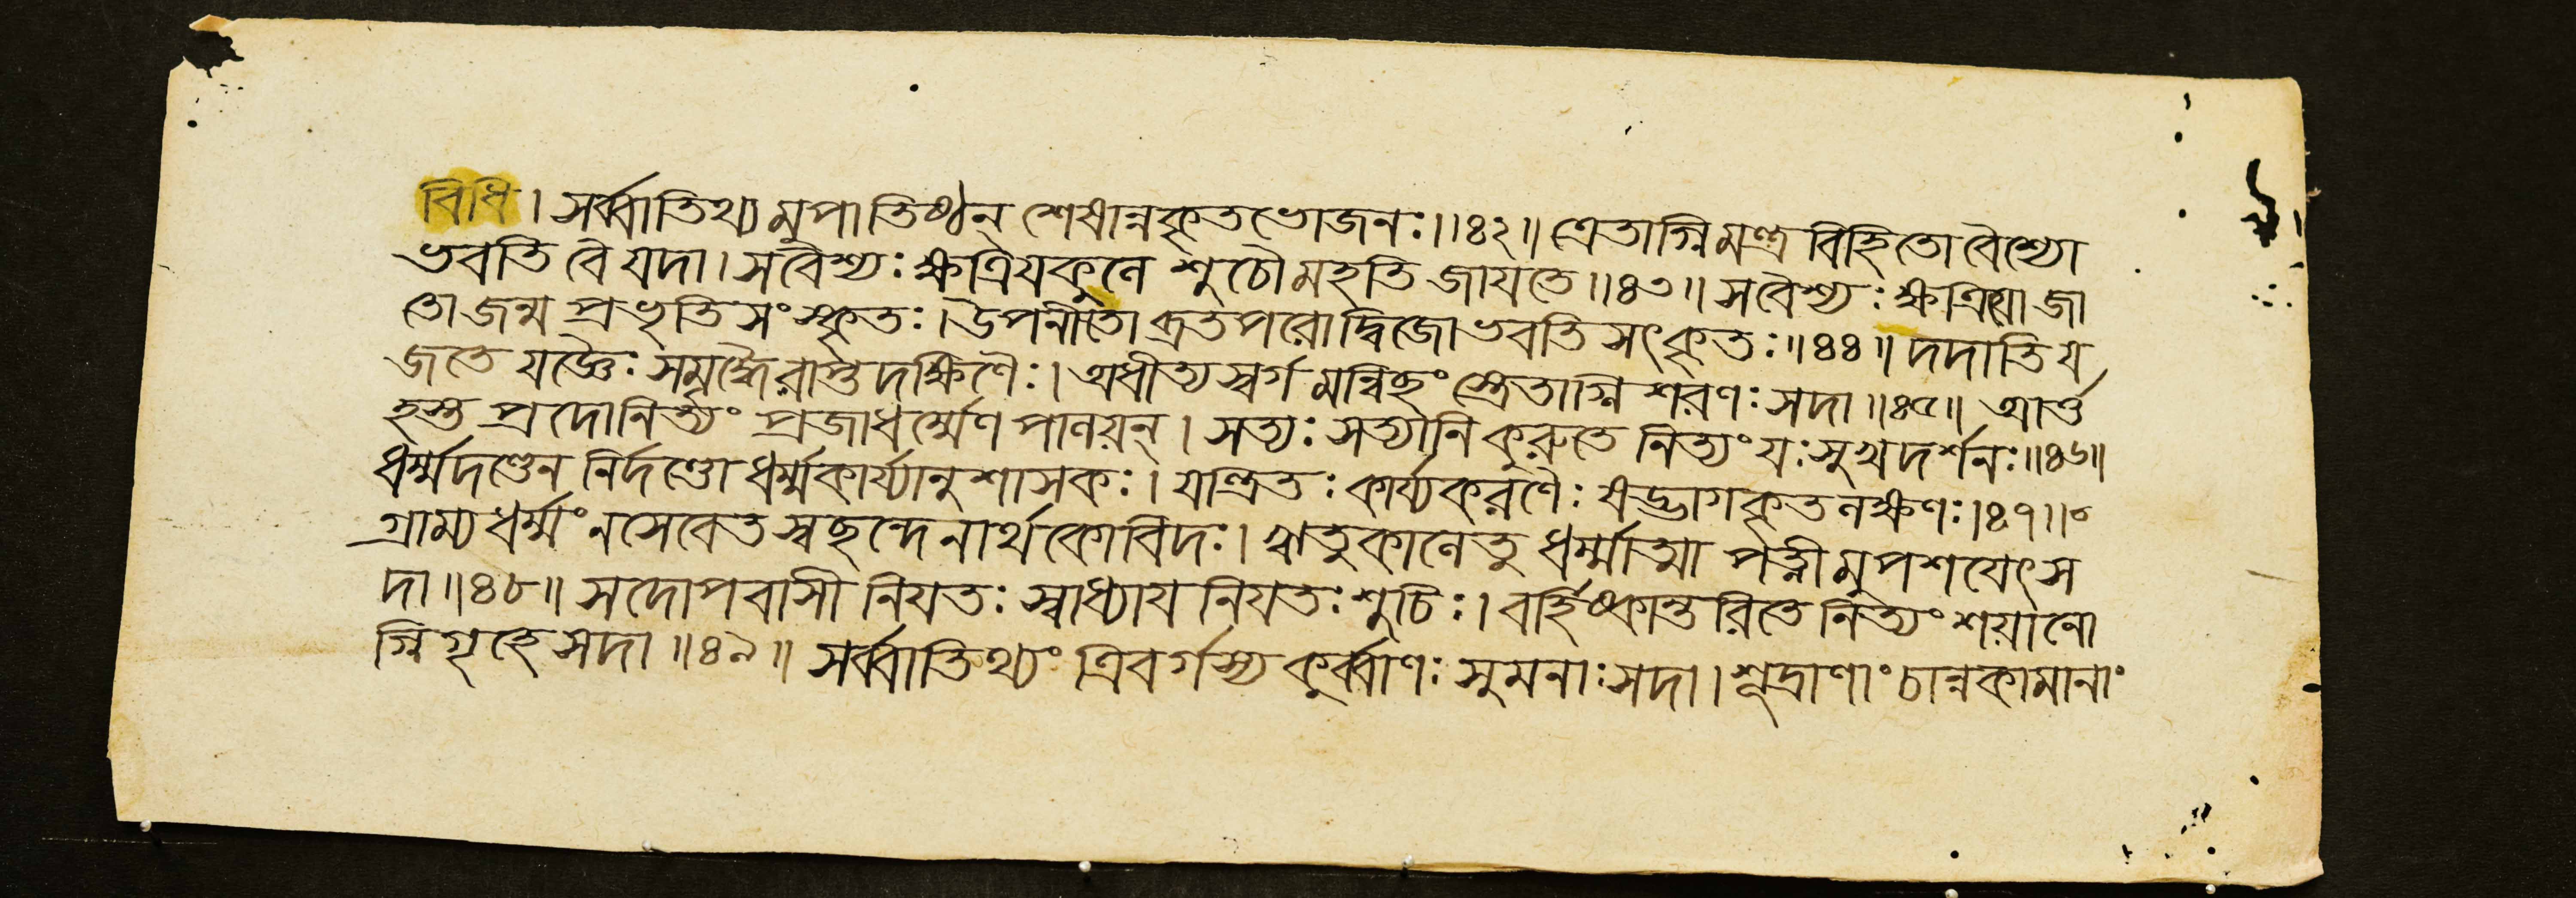 বিধি। সর্ব্বাতিথ্য মুপাতিষ্ঠন্ শেষান্নকৃতভোজনঃ।।৪২॥ ত্রেতাগ্নিমন্ত্র বিহিতো বৈশ্যো
ভবতি বৈ যদা। স বৈশ্যঃ ক্ষত্রিযকুলে শুচৌ মহতি জাযতে॥৪৩॥ স বৈশ্যঃ ক্ষত্রিযো জা
তো জন্ম প্রভৃতি সংস্কৃতঃ। উপনীতো ব্রতপরো দ্বিজো ভবতি সৎকৃতঃ॥৪৪॥ দদাতি য
জতে যজ্ঞৈঃ সমৃদ্ধৈরাপ্তদক্ষিণৈঃ। অধীত্য স্বর্গ মন্বিছং স্ত্রেতাগ্নি শরণঃ সদা॥৪৫॥ আর্ত্ত
হস্ত প্রদো নিত্যং প্রজাধর্ম্মেণ পালয়ন্। সত্যঃ সত্যানি কুরুতে নিত্যং যঃ সুখদর্শনঃ॥৪৬॥
ধর্ম্মদণ্ডেন নির্দণ্ডো ধর্ম্মকার্য্যানুশাসকঃ। যন্ত্রিতঃ কার্য্যকরণৈঃ ষড্ভাগকৃতলক্ষণঃ।৪৭॥
গ্রাম্যধর্ম্মং ন সেবেত স্বছন্দেনার্থকোবিদঃ। ঋতুকালে তু ধর্ম্মাত্মা পত্নীমুপশযেৎ স
দা॥৪৮॥ সদোপবাসী নিযতঃ স্বাধ্যায নিযতঃ শুচিঃ। বর্হিষ্কান্তরিতে নিত্যং শয়ানো
গ্নিগৃহে সদা॥৪৯॥ সর্ব্বাতিথ্যং ত্রিবর্গস্য কুর্ব্বাণঃ সুমনাঃ সদা। শূদ্রাণাং চান্নকামানাং